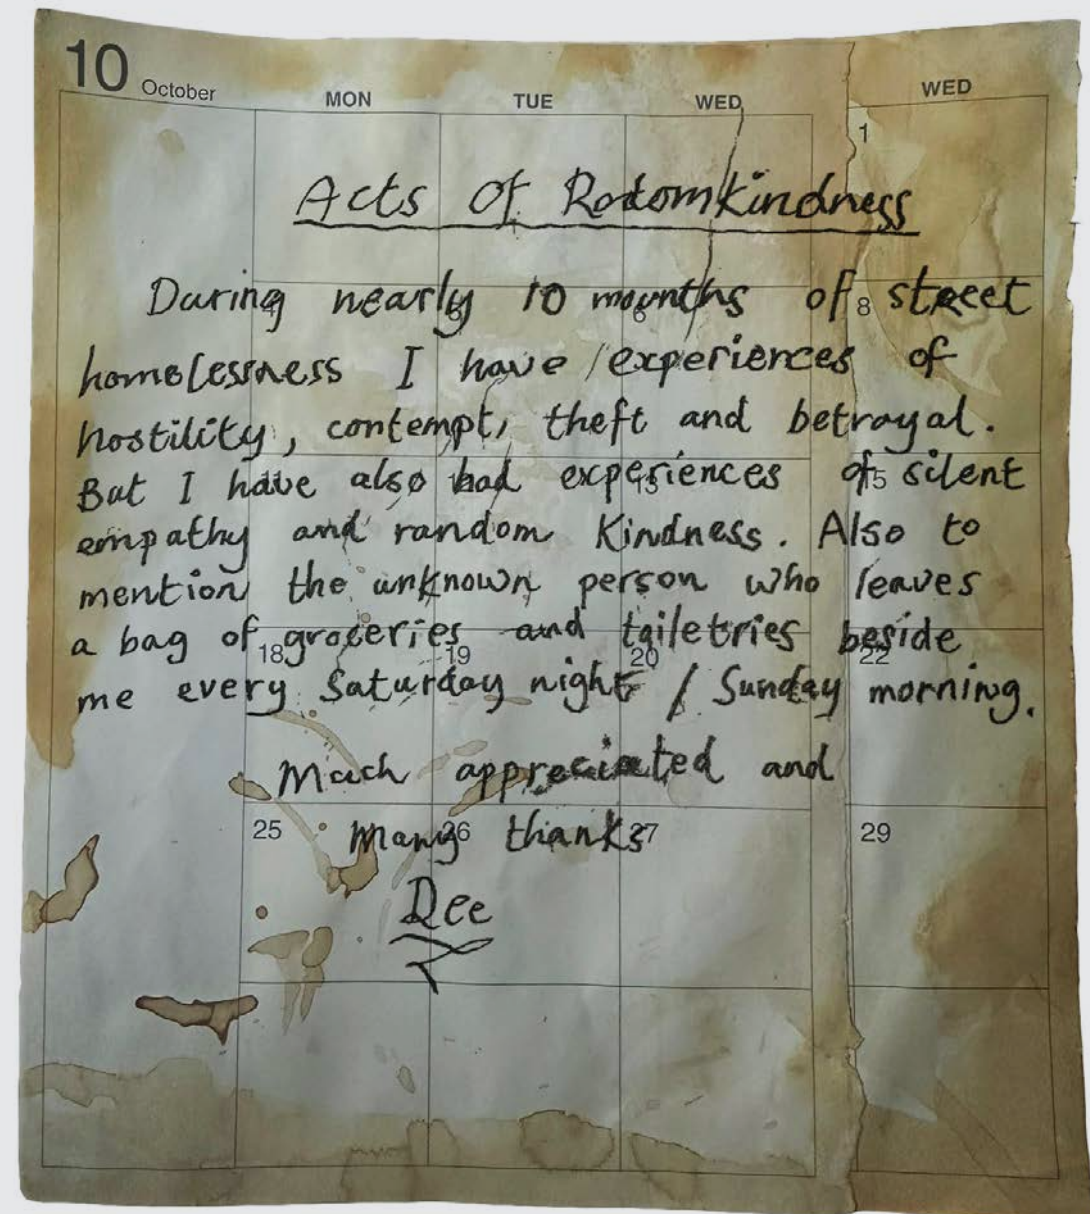 10 October
MON TUE WED WED
1
Acts Of Rodomkindness
During nearly 10 mounths of street
homelessness I have experiences of
hostility, contempt, theft and betrayal.
But I have also had experiences of silent
empathy and random Kindness. Also to
mention the unknown person who leaves
a bag of groceries and tailetries beside
me every Saturday night / Sunday morning.
Much appreciated and
Many thanks
Dee
4 5 6 8
13 15
18 19 20 22
25 26 27 29